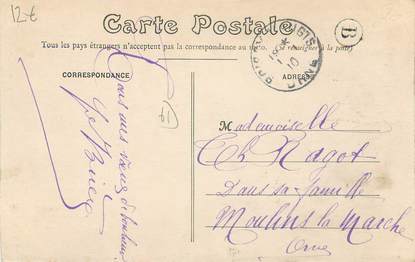 12€
Carte Postale
Tous les pays étrangers n'acceptent pas la correspondance au recto. (Se renseigner à la poste)
B
CORRESPONDANCE
ADRESSE
10
ORNE
Tous nos vœux de bonheur
M
Mademoiselle
Ch Ragot
Dans sa famille
Moulins la Marche
Orne